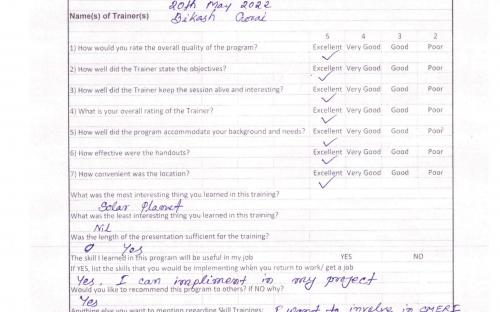 20th May 2022
Name(s) of Trainer(s) Bikash Gorai
5 4 3 2
1) How would you rate the overall quality of the program? Excellent Very Good Good Poor
2) How well did the Trainer state the objectives? Excellent Very Good Good Poor
3) How well did the Trainer keep the session alive and interesting? Excellent Very Good Good Poor
4) What is your overall rating of the Trainer? Excellent Very Good Good Poor
5) How well did the program accommodate your background and needs? Excellent Very Good Good Poor
6) How effective were the handouts? Excellent Very Good Good Poor
7) How convenient was the location? Excellent Very Good Good Poor
What was the most interesting thing you learned in this training?
Solar Planet
What was the least interesting thing you learned in this training?
Nil
Was the length of the presentation sufficient for the training?
Yes
The skill I learned in this program will be useful in my job YES NO
If YES, list the skills that you would be implementing when you return to work/ get a job
Yes, I can impliment in my project
Would you like to recommend this program to others? If NO why?
Yes
Anything else you want to mention regarding Skill Trainings: I want to involve in CMERI